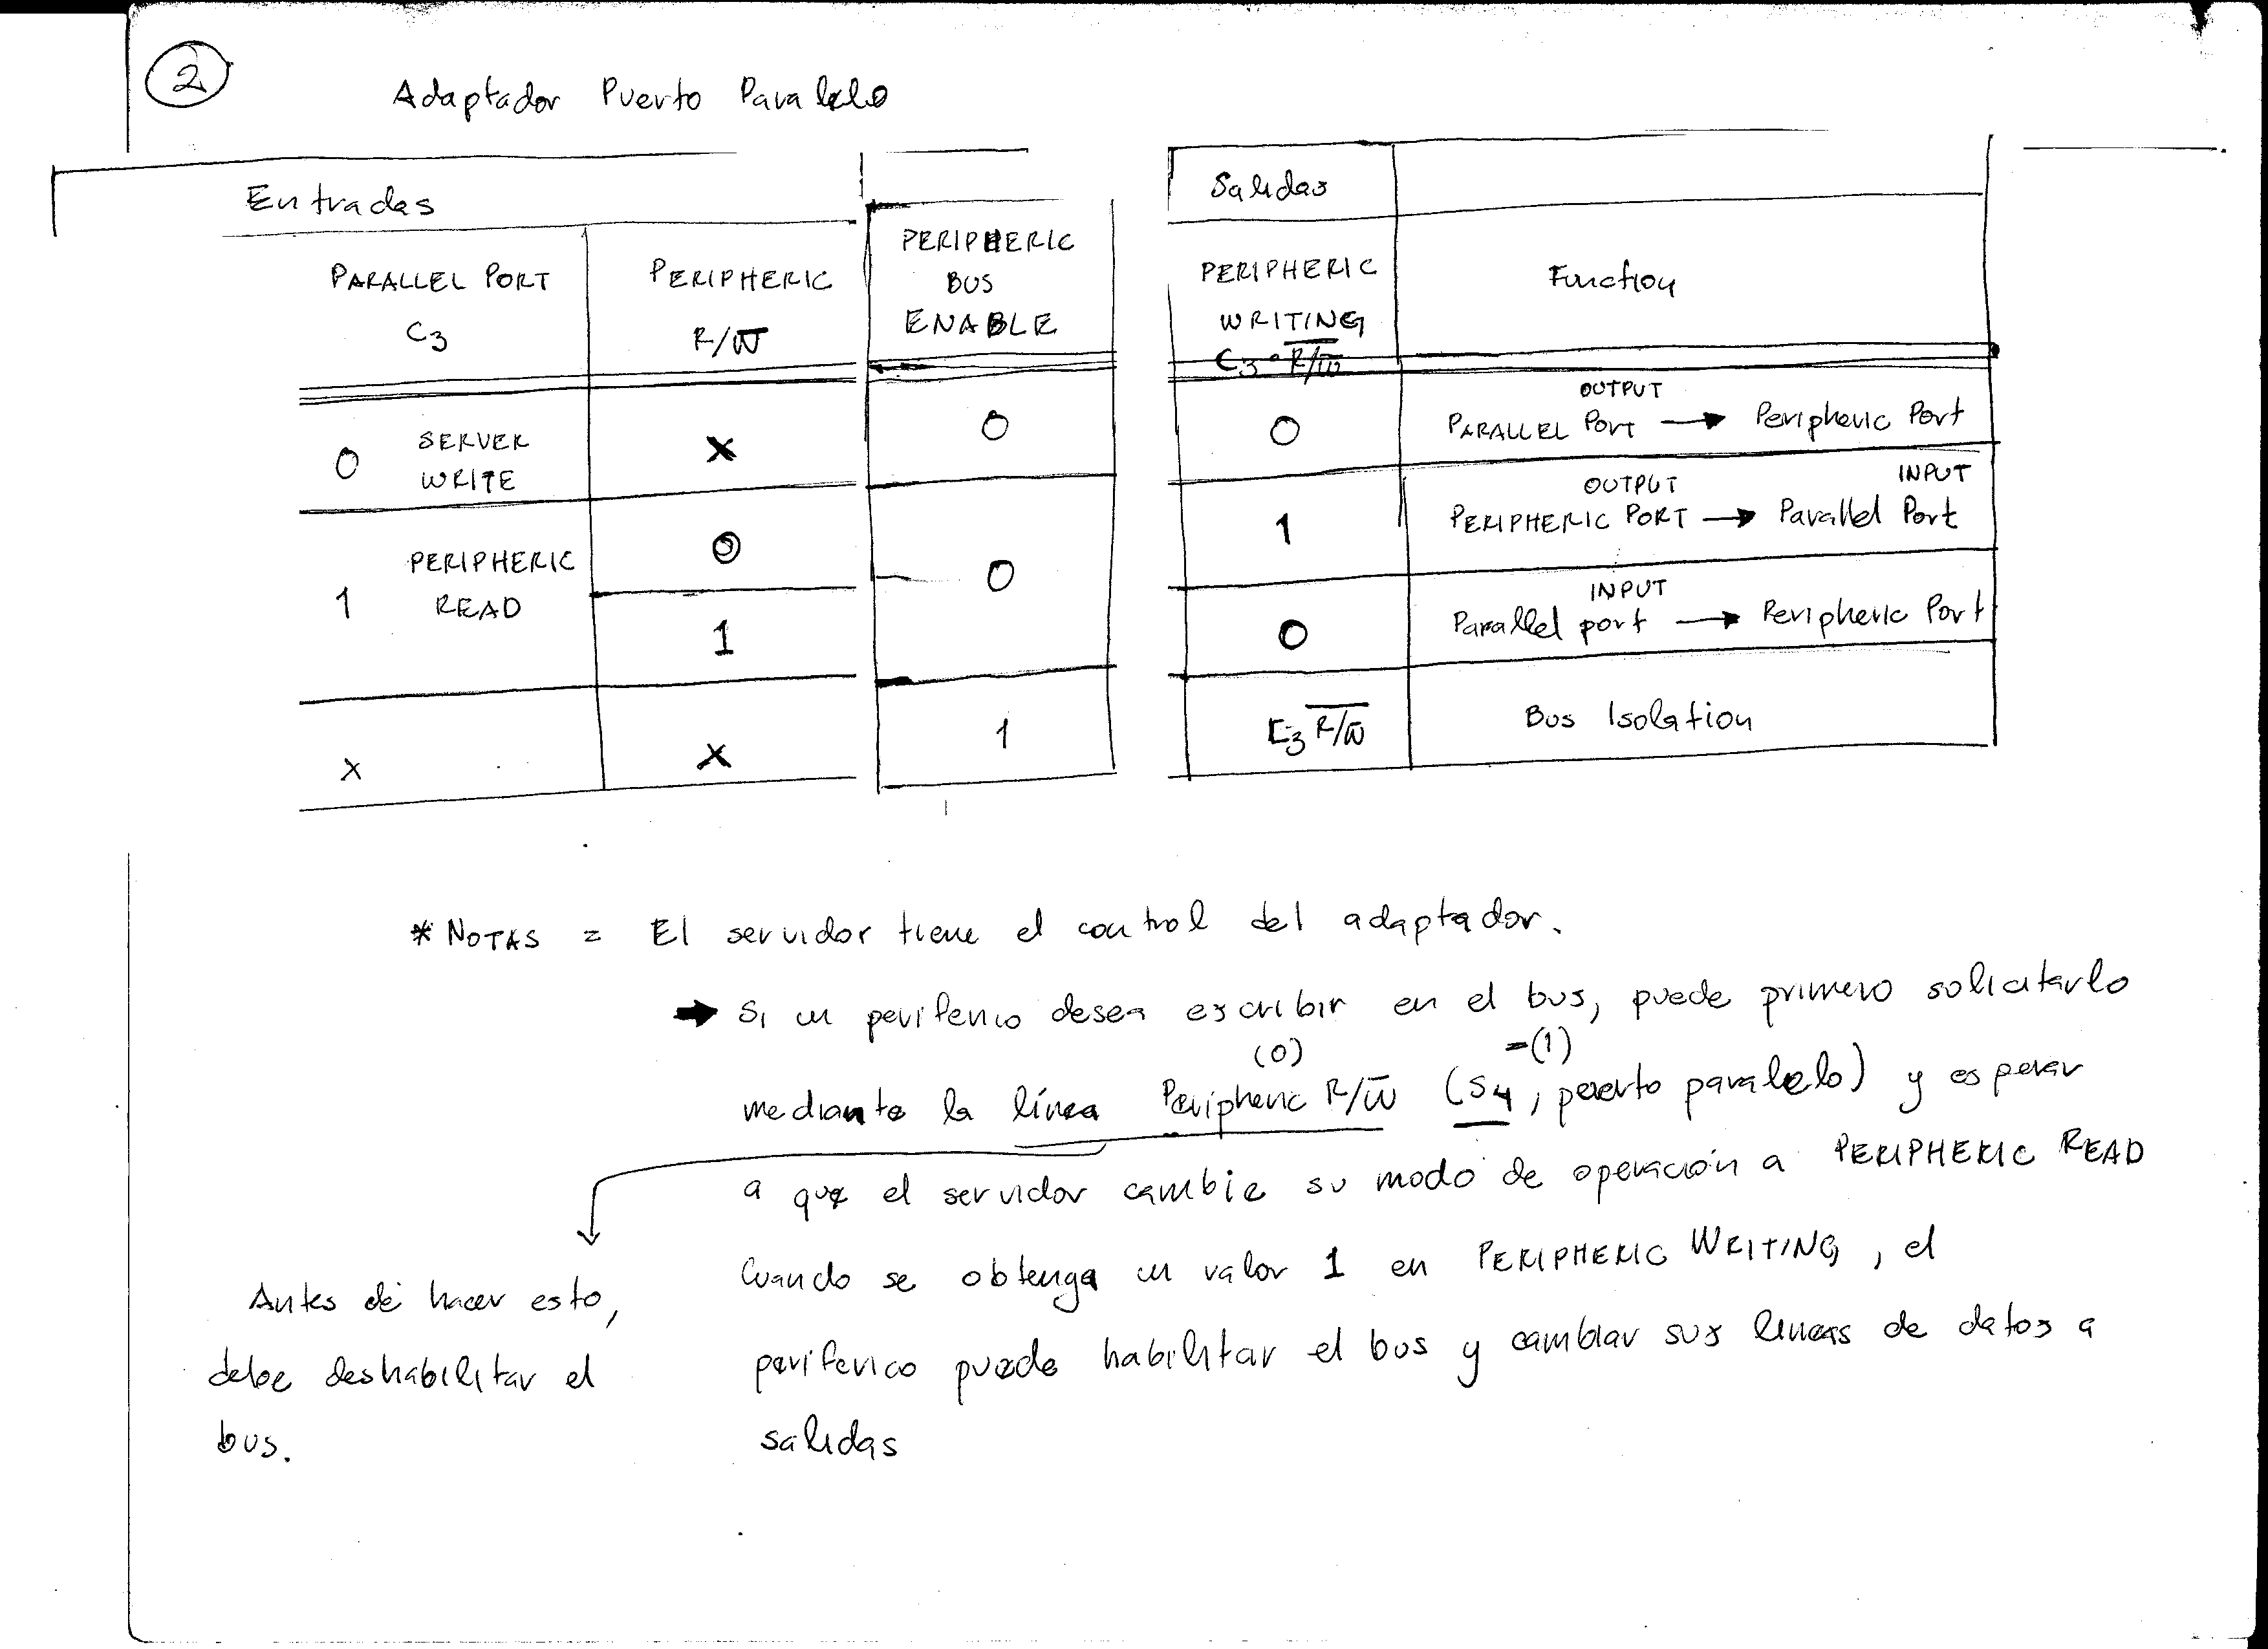 2
Adaptador Puerto Paralelo
Entradas
Salidas
PARALLEL PORT
C3
PERIPHERIC
R/W̅
PERIPHERIC
BUS
ENABLE
PERIPHERIC
WRITING
C3 · R/W̅
Function
0 SERVER
WRITE
X
0
0
OUTPUT
PARALLEL Port → Peripheric Port
1 PERIPHERIC
READ
0
0
1
OUTPUT INPUT
PERIPHERIC PORT → Parallel Port
1
0
INPUT
Parallel port → Peripheric Port
X
X
1
C3 R/W̅
Bus Isolation
* NOTAS = El servidor tiene el control del adaptador.
→ Si un periferico desea escribir en el bus, puede primero solicitarlo
(0) =(1)
mediante la línea Peripheric R/W̅ (S4, puerto paralelo) y esperar
a que el servidor cambie su modo de operación a PERIPHERIC READ
Cuando se obtenga un valor 1 en PERIPHERIC WRITING, el
periferico puede habilitar el bus y cambiar sus lineas de datos a
salidas
Antes de hacer esto,
debe deshabilitar el
bus.